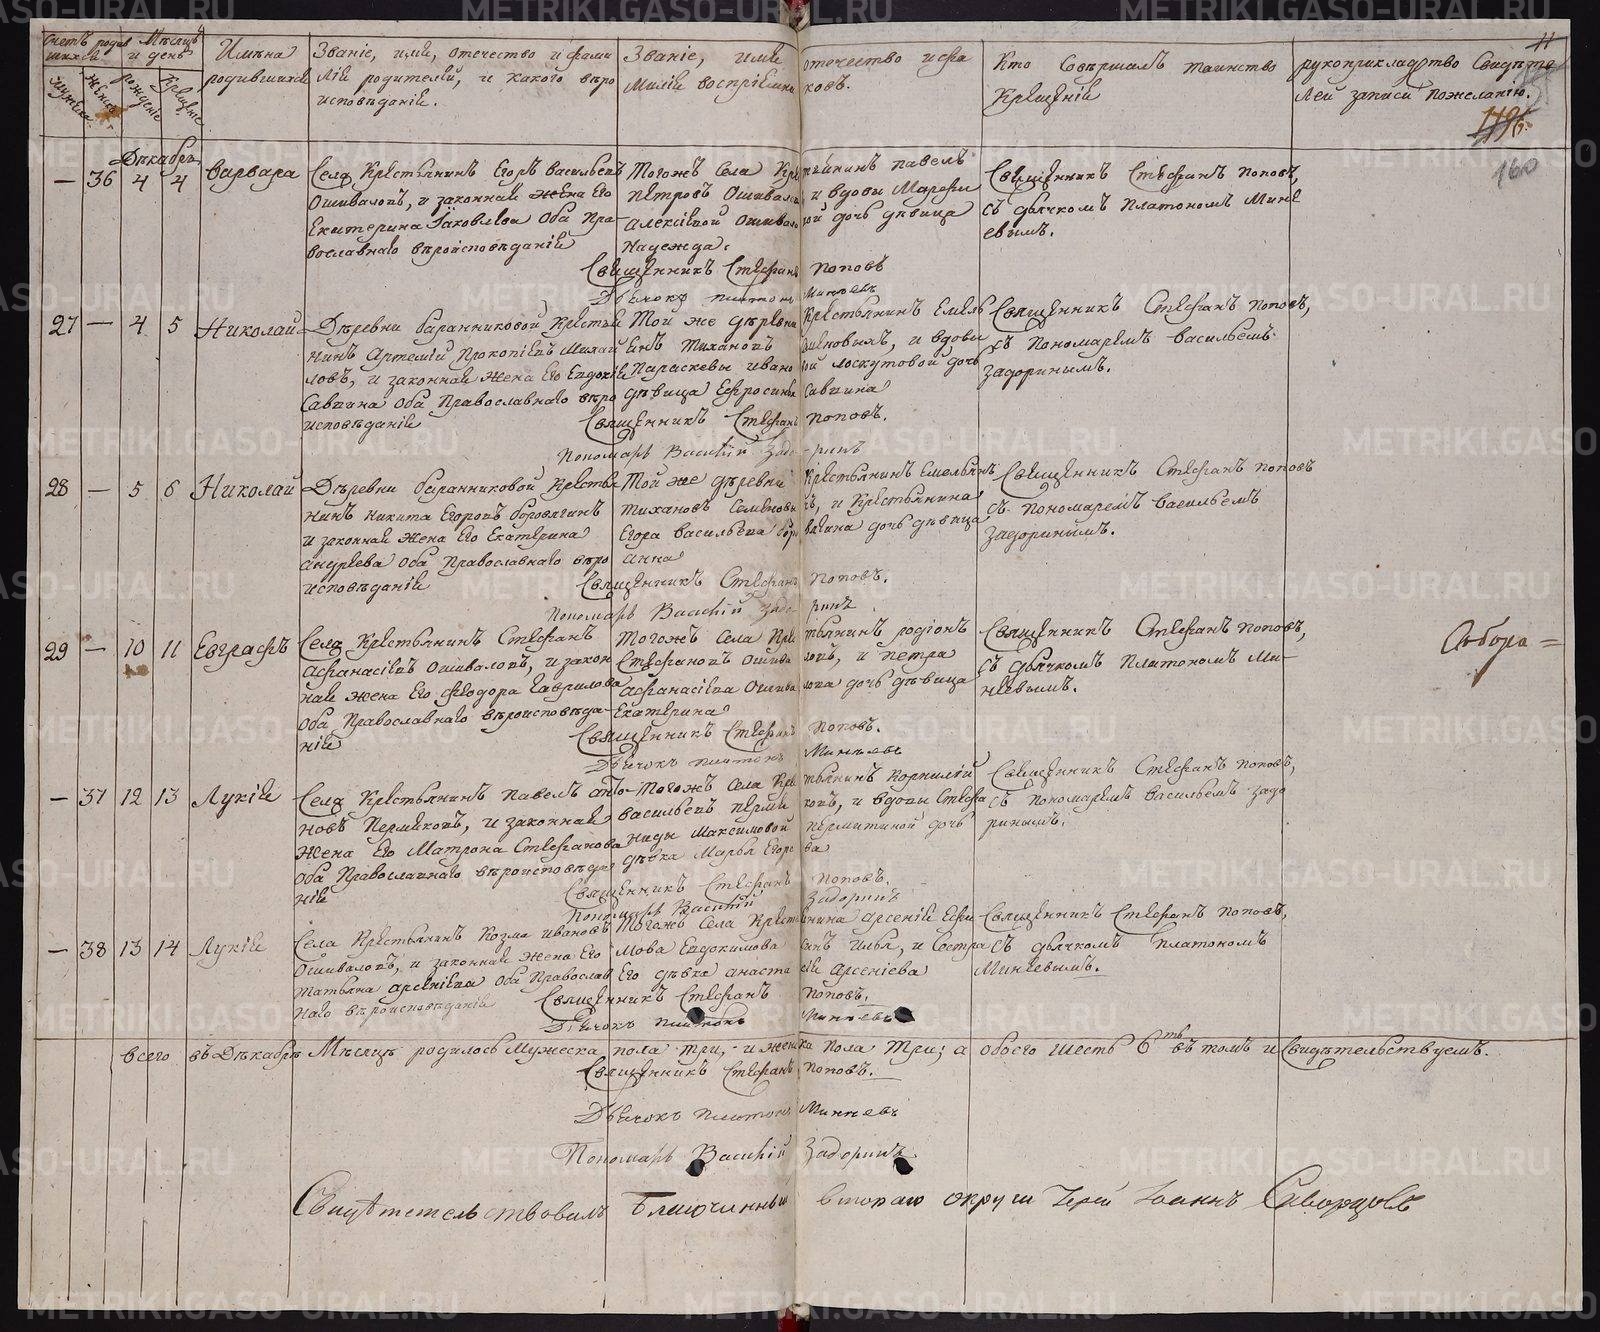 Счетъ родив Мѣсяцъ
шихся и день
Имѣна
родившихся
Званіе, имя, отечество и фами
лія родителей, и какого вѣро
исповѣданія.
Званіе, имя отечество и фа
милія воспріемни ковъ.
Кто совѣршалъ таинство
Крещѣнія
рукоприкладство Свидѣте
лей записи по желанію.
мужеска
женска
рожденіе
Крѣщеніе
11
160
Дѣкабрь
— 36 4 4 Варвара
Села Крѣстьянинъ Егоръ Васильевъ
Ошиваловъ, и законная жена Его
Екатерина Іаковлева Оба Пра-
вославнаго вѣроисповѣданія
Тогожъ Села Крестьянинъ Павелъ
Петровъ Ошиваловъ и вдовы Марфы
Алексѣевой Ошиваловой дочь дѣвица
Надежда.
Священникъ Стефанъ Поповъ,
съ дьячкомъ Платономъ Минѣ
евымъ.
Священникъ Стефанъ Поповъ
Дьячокъ Платонъ Минѣевъ
27 — 4 5 Николай
Дѣревни Баранниковой Крѣстья
нинъ Артемій Прокопіевъ Михай
ловъ, и законная жена Его Евдокія
Саввина Оба Православнаго вѣро
исповѣданія
Той же дѣревни Крѣстьянинъ Емель
янъ Тихановъ и вдовы
Параскевы Ивановой Лоскутовой дочь
дѣвица Ефросинья Саввина
Священникъ Стефанъ Поповъ,
съ Пономаремъ Васильемъ
Задоринымъ.
Священникъ Стефанъ Поповъ.
Пономарь Василій Задоринъ
28 — 5 6 Николай
Дѣревни Баранниковой Крѣстья
нинъ Никита Егоровъ Боровягинъ
и законная жена Его Екатерина
Андреева Оба Православнаго вѣро
исповѣданія
Той же дѣревни Крѣстьянинъ Емельянъ
Тихановъ и Крѣстьянина
Егора Васильева дочь дѣвица
Анна
Священникъ Стефанъ Поповъ
съ Пономаремъ Васильемъ
Задоринымъ.
Священникъ Стефанъ Поповъ.
Пономарь Василій Задоринъ
29 — 10 11 Евграфъ
Села Крѣстьянинъ Стефанъ
Афанасіевъ Ошиваловъ, и закон
ная жена Его Феодора Гаврилова
Оба Православнаго вѣроисповѣда-
нія
Тогожъ Села Крестьянинъ Родіонъ
Стефановъ Ошиваловъ, и Петра
Афанасіева Ошивалова дочь дѣвица
Екатерина
Священникъ Стефанъ Поповъ,
съ дьячкомъ Платономъ Ми-
нѣевымъ.
Священникъ Стефанъ Поповъ.
Дьячокъ Платонъ Минѣевъ
— 37 12 13 Лукія
Села Крѣстьянинъ Павелъ
новъ Пермяковъ, и законная
жена Его Матрона Стефанова
Оба Православнаго вѣроисповѣда
нія
Тогожъ Села Крестьянинъ Корнилій
Васильевъ и вдовы Степа
ниды Максимовой дочь
дѣвка Марья Егорова
Священникъ Стефанъ Поповъ,
съ Пономаремъ Васильемъ Задо
ринымъ.
Священникъ Стефанъ Поповъ.
Пономарь Василій Задоринъ
— 38 13 14 Лукія
Села Крѣстьянинъ Козма Ивановъ
Ошиваловъ, и законная жена Его
Татьяна Арсеніева Оба Православ
наго вѣроисповѣданія
Тогожъ Села Крѣстьянина Арсенія Ефи
мова Евдокимова сынъ Илья, и Сестра
Его дѣвка Анастасія Арсеніева
Священникъ Стефанъ Поповъ,
съ дьячкомъ Платономъ
Минѣевымъ.
Священникъ Стефанъ Поповъ.
Дьячокъ Платонъ Минѣевъ
Всего въ Дѣкабрѣ Мѣсяцѣ родилось Мужеска пола три, и женска пола три; а обоего шесть 6ть въ томъ и свидѣтельствуемъ.
Священникъ Стефанъ Поповъ.
Дьячокъ Платонъ Минѣевъ
Пономарь Василій Задоринъ.
Свидѣтетельствовалъ Благочинный втораго округа Іерей Іоаннъ Скворцовъ
METRIKI.GASO-URAL.RU